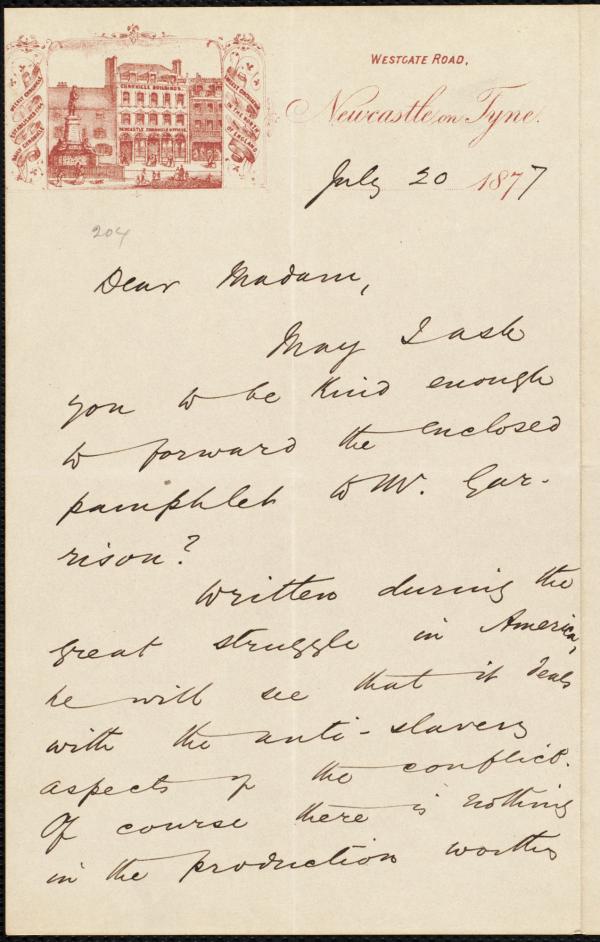 WESTGATE ROAD,
Newcastle on Tyne.
July 20 1877
CHRONICLE BUILDINGS
NEWCASTLE CHRONICLE OFFICES
204
Dear Madam,
May I ask
you to be kind enough
to forward the enclosed
pamphlet to Mr. Gar-
rison?
Written during the
great struggle in America,
he will see that it deals
with the anti-slavery
aspects of the conflict.
Of course there is nothing
in the production worthy